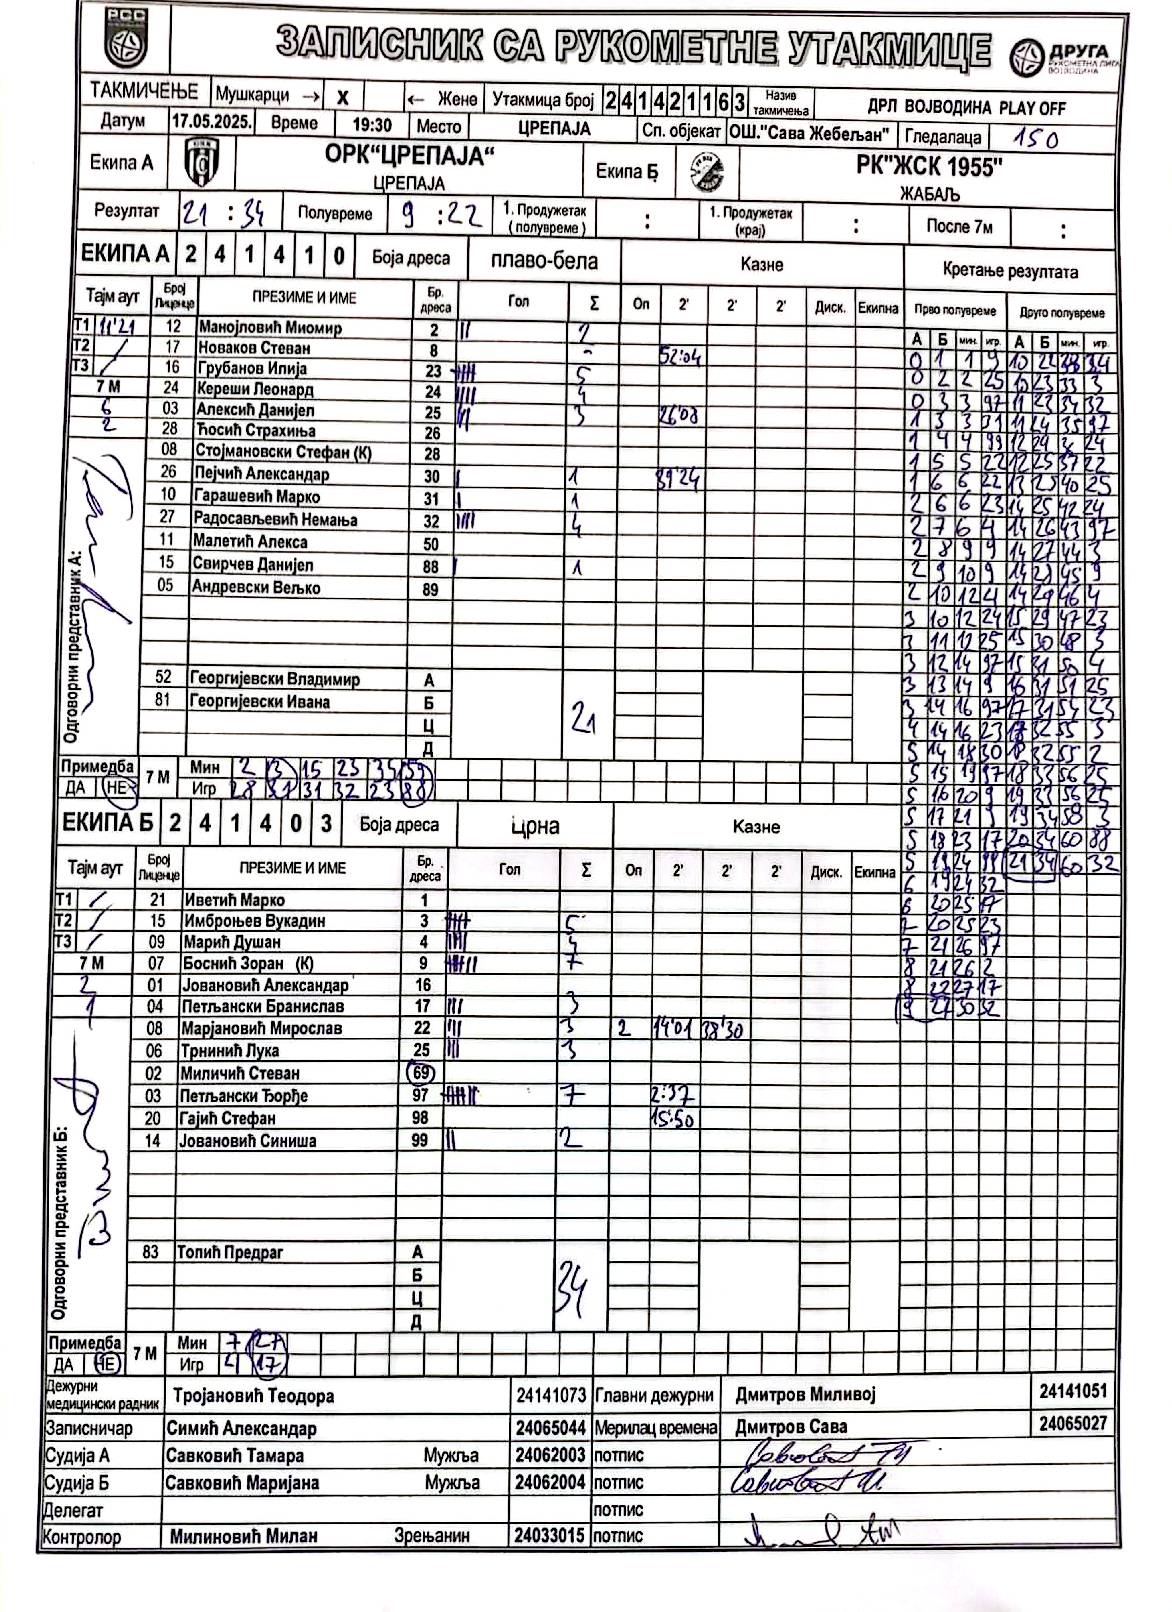 РСС
ЗАПИСНИК СА РУКОМЕТНЕ УТАКМИЦЕ
ДРУГА
РУКОМЕТНА ЛИГА
ВОЈВОДИНА
ТАКМИЧЕЊЕ Мушкарци → X ← Жене Утакмица број 2 4 1 4 2 1 1 6 3 Назив такмичења ДРЛ ВОЈВОДИНА PLAY OFF
Датум 17.05.2025. Време 19:30 Место ЦРЕПАЈА Сп. објекат ОШ."Сава Жебељан" Гледалаца 150
Екипа А ОРК“ЦРЕПАЈА“ ЦРЕПАЈА Екипа Б РК"ЖСК 1955" ЖАБАЉ
Резултат 21 : 34 Полувреме 9 : 22 1. Продужетак (полувреме) : 1. Продужетак (крај) : После 7м :
ЕКИПА А 2 4 1 4 1 0 Боја дреса плаво-бела Казне Кретање резултата
Тајм аут Број Лиценце ПРЕЗИМЕ И ИМЕ Бр. дреса Гол Σ Оп 2' 2' 2' Диск. Екипна Прво полувреме Друго полувреме
А Б мин. игр. А Б мин. игр.
Т1 11'21 12 Манојловић Миомир 2 2
Т2 / 17 Новаков Стеван 8 - 52:04
Т3 / 16 Грубанов Илија 23 5
7 М 24 Кереши Леонард 24 4
6 03 Алексић Данијел 25 3 26'08
2 28 Ћосић Страхиња 26
08 Стојмановски Стефан (К) 28
26 Пејчић Александар 30 1 39'24
10 Гарашевић Марко 31 1
27 Радосављевић Немања 32 4
11 Малетић Алекса 50
15 Свирчев Данијел 88 1
05 Андревски Вељко 89
Одговорни представник А:
52 Георгијевски Владимир А
81 Георгијевски Ивана Б
Ц
Д
21
0 1 1 9
0 2 2 25 10 23 33 3
0 3 3 97 11 23 34 32
1 3 3 31 11 24 35 97
1 4 4 99
1 5 5 22 12 25 37 22
1 6 6 22 13 25 40 25
2 6 6 23 14 25 42 24
2 7 6 4 14 26 43 97
2 8 9 9 14 27 44 3
2 9 10 9 14 28 45 9
2 10 12 4 14 29 46 4
3 10 12 24 15 29 47 23
3 11 12 25 15 30 48 3
3 12 14 97 15 31 50 4
3 13 14 9 16 31 51 25
3 14 16 97 17 31 54 23
4 14 16 23 17 32 55 3
5 14 18 30 18 32 55 2
5 15 19 97 18 33 56 25
5 16 20 9 19 33 56 25
5 17 21 9 19 34 58 3
5 18 23 17 20 34 60 88
5 19 24 99 21 34 60 32
6 19 24 32
6 20 25 17
7 20 25 23
7 21 26 97
8 21 26 2
8 22 27 17
9 22 30 32
Примедба ДА НЕ 7 М Мин 2 3 15 23 35 59
Игр 28 31 31 32 23 88
ЕКИПА Б 2 4 1 4 0 3 Боја дреса црна Казне
Тајм аут Број Лиценце ПРЕЗИМЕ И ИМЕ Бр. дреса Гол Σ Оп 2' 2' 2' Диск. Екипна
Т1 / 21 Иветић Марко 1
Т2 / 15 Имброњев Вукадин 3 5
Т3 / 09 Марић Душан 4 4
7 М 07 Боснић Зоран (К) 9 7
2 01 Јовановић Александар 16
1 04 Петљански Бранислав 17 3
08 Марјановић Мирослав 22 3 2 14'01 38'30
06 Трнинић Лука 25 3
02 Миличић Стеван 69
03 Петљански Ђорђе 97 7 2:37
20 Гајић Стефан 98 15:50
14 Јовановић Синиша 99 2
Одговорни представник Б:
83 Топић Предраг А
Б
Ц
Д
34
Примедба ДА НЕ 7 М Мин 7 27
Игр 4 17
Дежурни медицински радник Тројановић Теодора 24141073 Главни дежурни Дмитров Миливој 24141051
Записничар Симић Александар 24065044 Мерилац времена Дмитров Сава 24065027
Судија А Савковић Тамара Мужља 24062003 потпис
Судија Б Савковић Маријана Мужља 24062004 потпис
Делегат потпис
Контролор Милиновић Милан Зрењанин 24033015 потпис